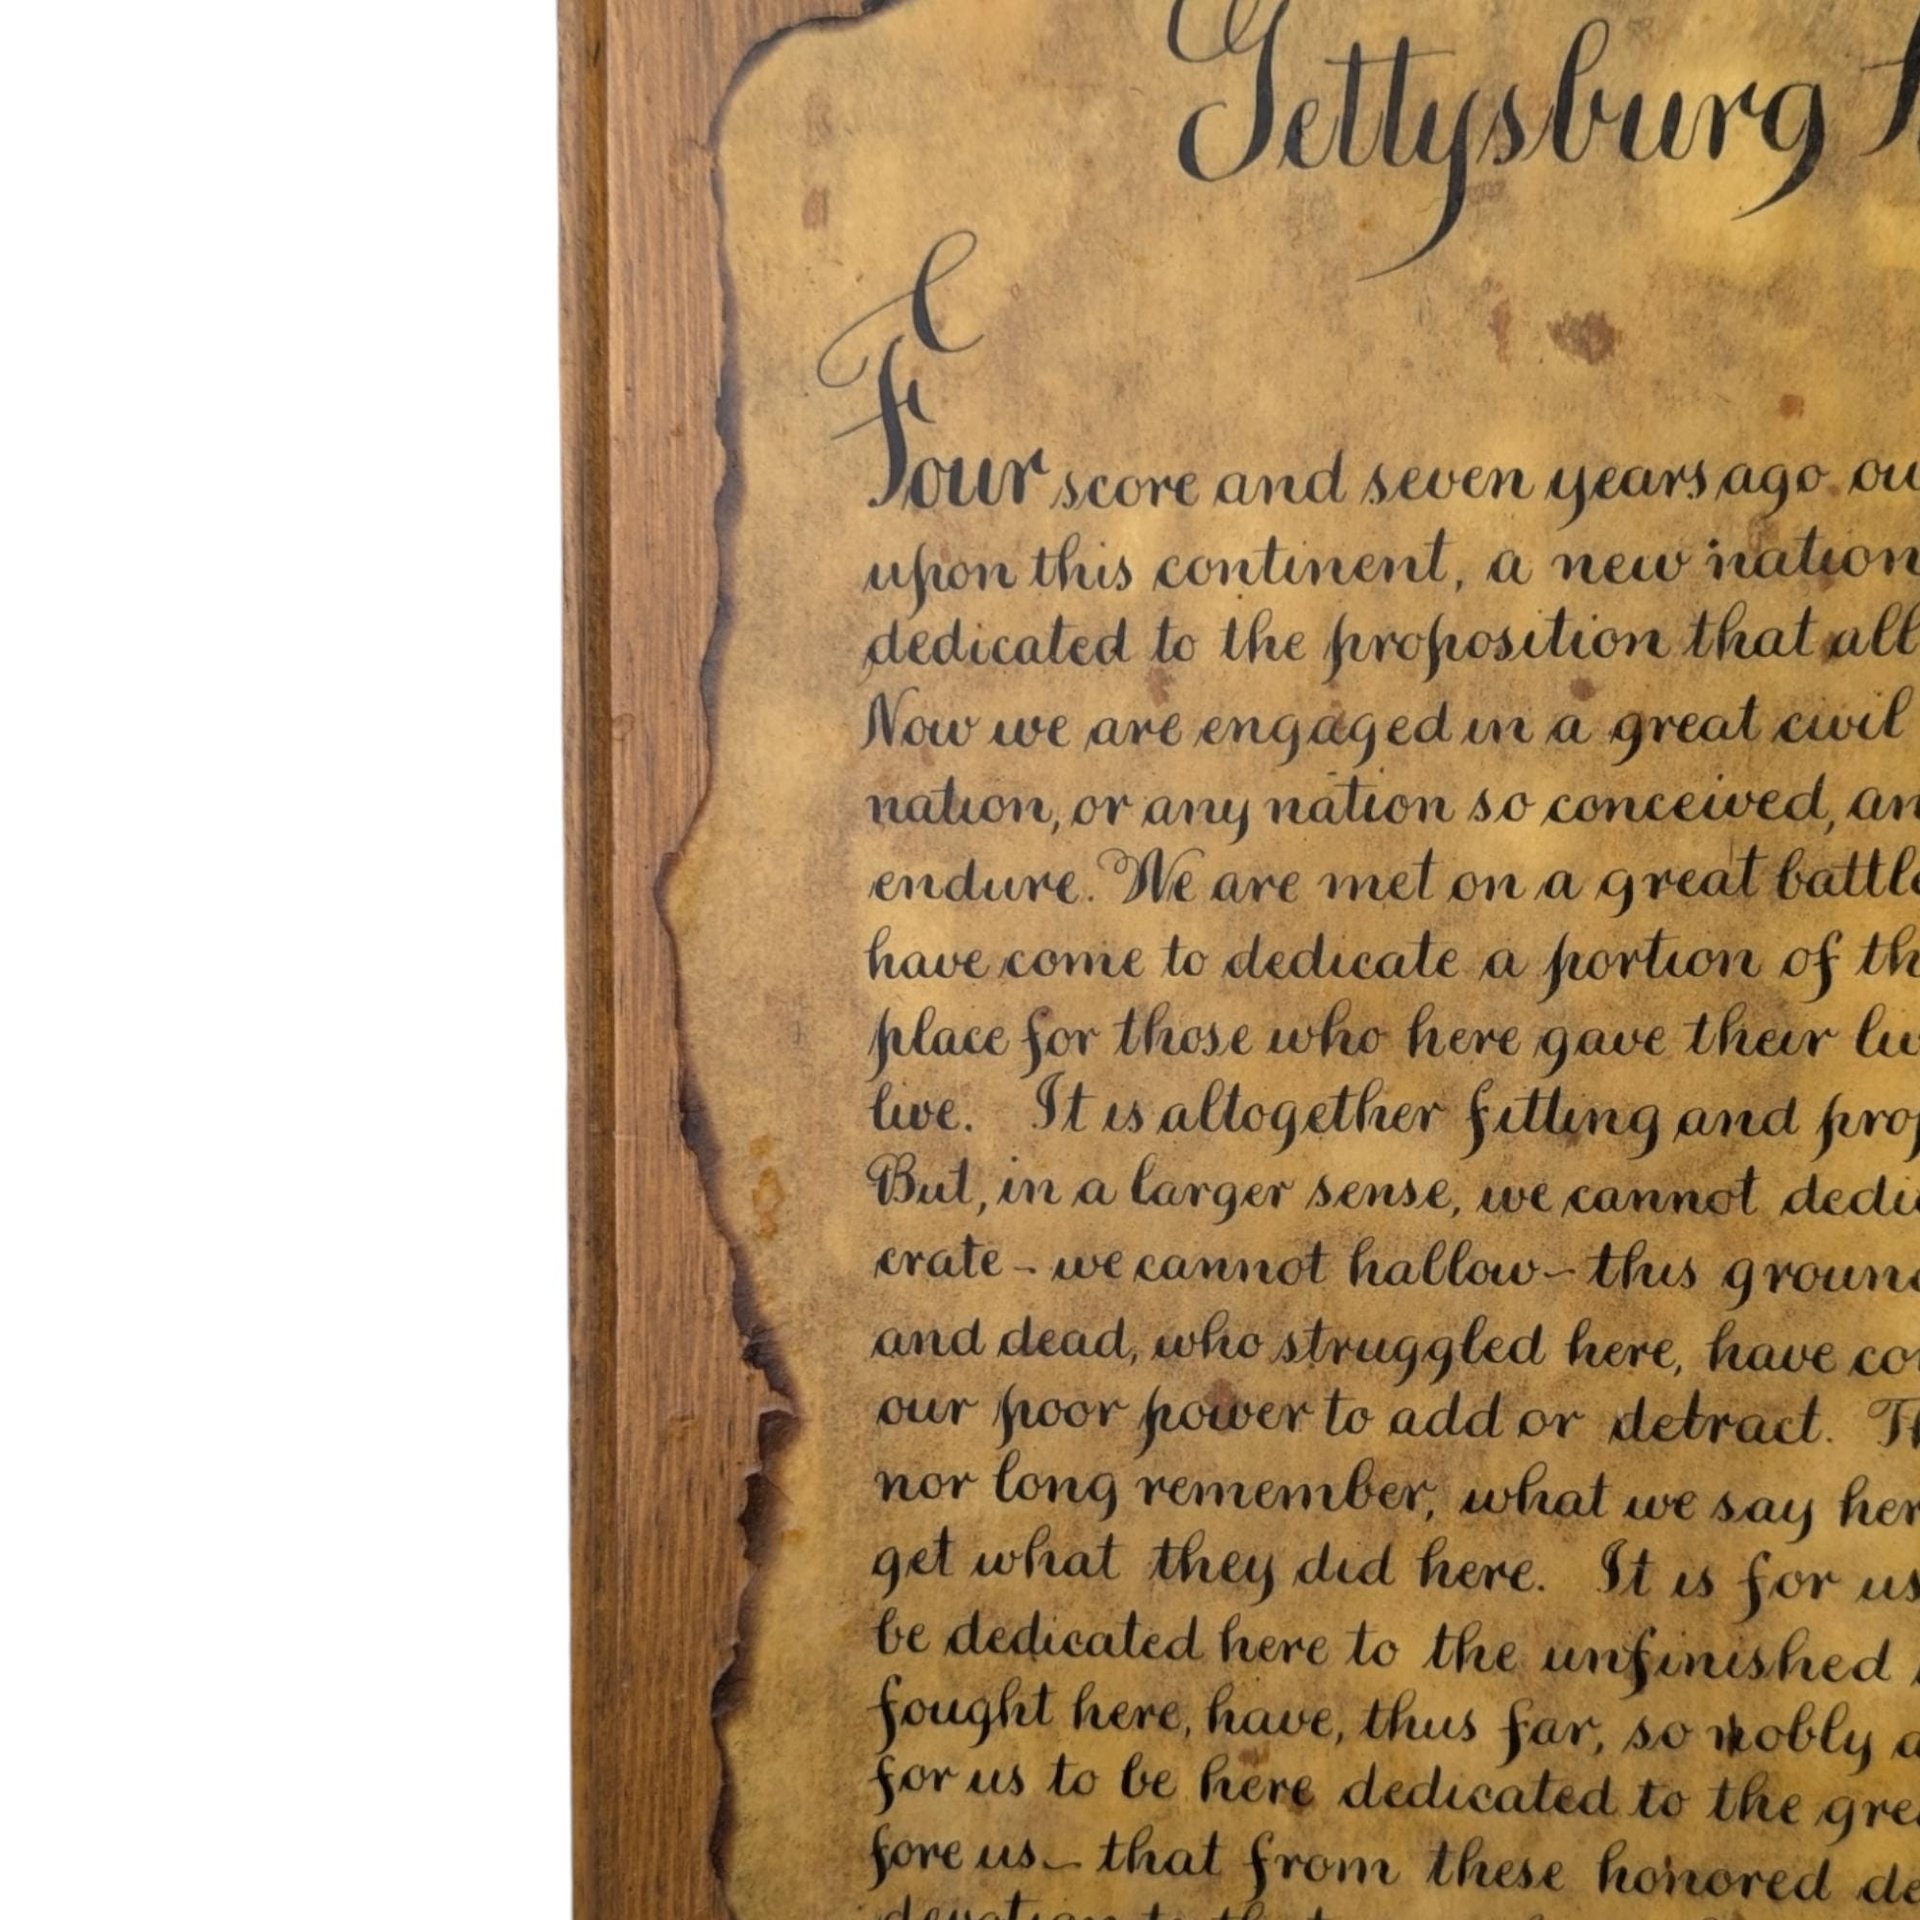 Gettysburg
Four score and seven years ago ou
upon this continent, a new nation
dedicated to the proposition that all
Now we are engaged in a great civil
nation, or any nation so conceived, an
endure. We are met on a great battle
have come to dedicate a portion of th
place for those who here gave their liv
live. It is altogether fitting and prop
But, in a larger sense, we cannot dedic
crate - we cannot hallow - this ground
and dead, who struggled here, have con
our poor power to add or detract. Th
nor long remember, what we say her
get what they did here. It is for us
be dedicated here to the unfinished
fought here, have, thus far, so nobly a
for us to be here dedicated to the grea
fore us - that from these honored de
devotion to that